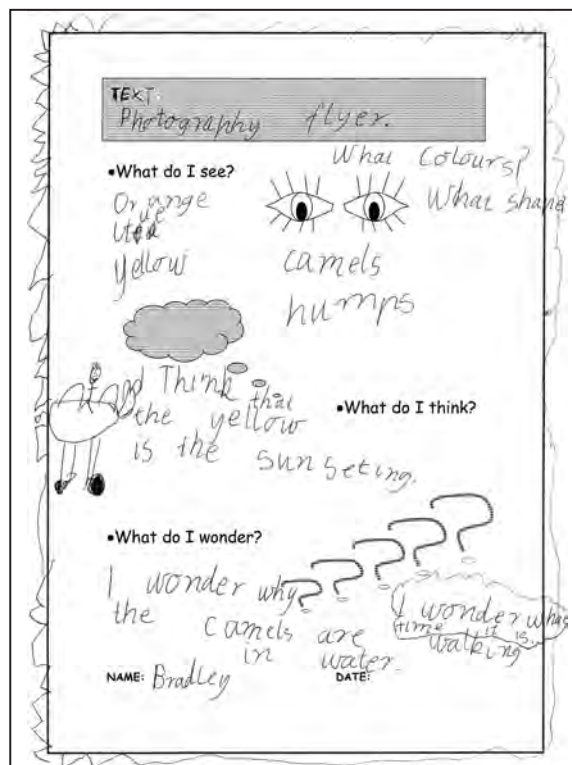 TEXT:
Photography flyer.
What Colours?
•What do I see?
What shape
Orange
yellow
camels
humps
I Think that
the yellow
is the sun seting.
•What do I think?
•What do I wonder?
I wonder why
the camels are
in water.
I wonder what
time it is
walking
NAME: Bradley
DATE: